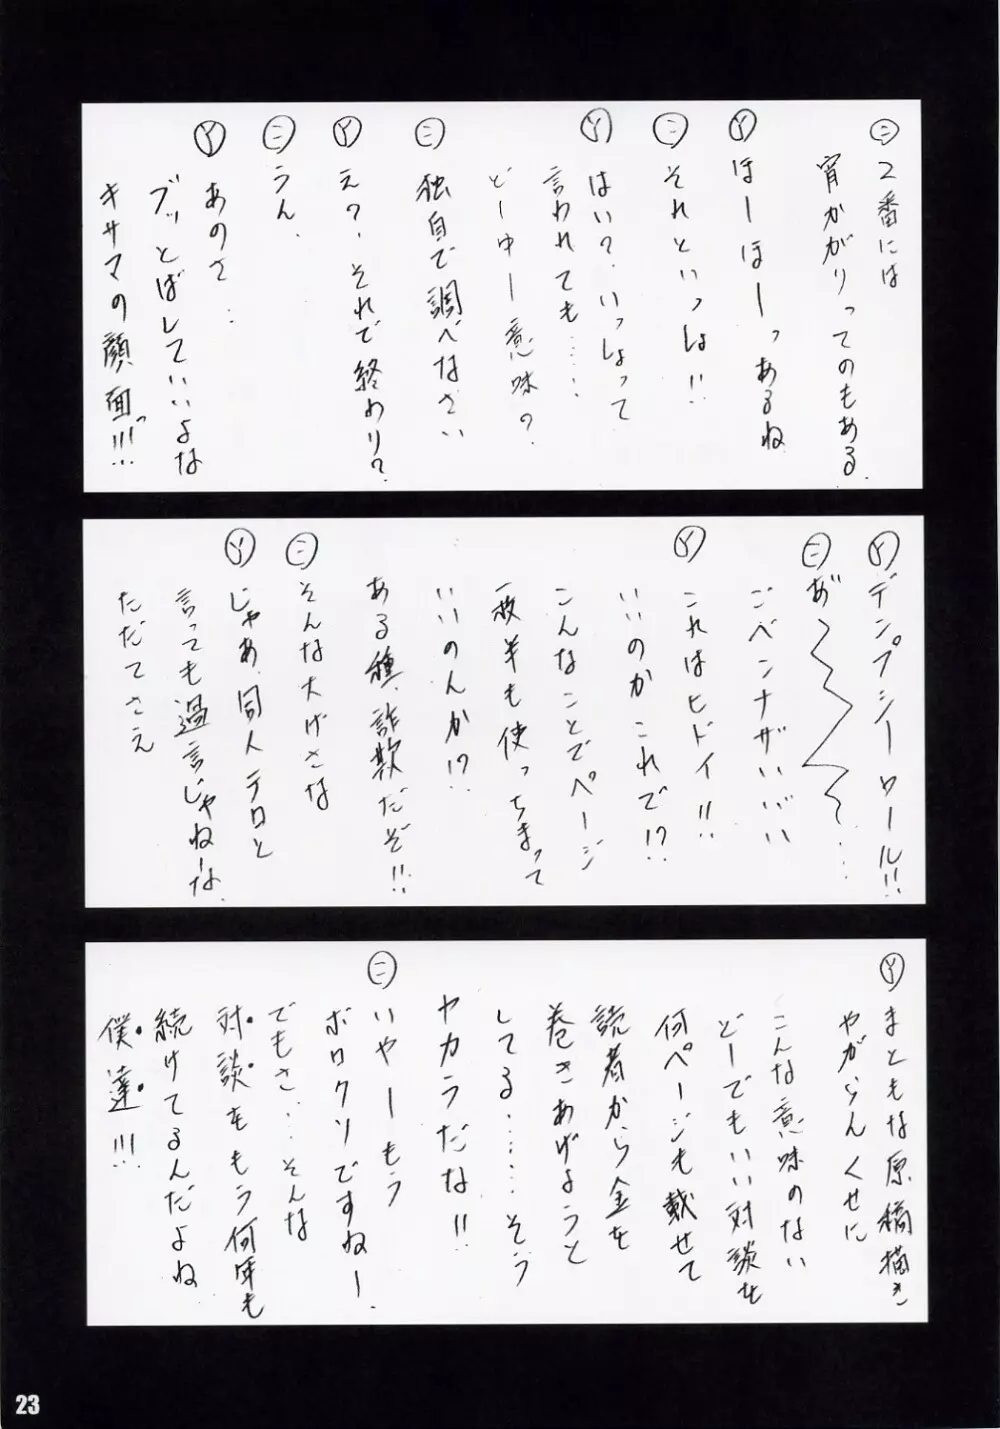 ㊁2番には
宵かがりってのもある
Ⓨほーほーっあるね
㊁それといっしょ!!
Ⓨはい?、いっしょって
言われても……
どーゆー意味の?
㊁独自で調べなさい
Ⓨえ?、それで終わり?
㊁うん、
Ⓨあのさ…
ブッとばしていいよな
キサマの顔面っ!!!
Ⓨデンプシーロール!!
㊁あ゛〜〜〜…
ごべンナザいいい
Ⓨこれはヒドイ!!
いいのかこれで!?
こんなことでページ
一枚半も使っちまって
いいのんか!?
ある種、詐欺だぞ!!
㊁そんな大げさな
Ⓨじゃあ、同人テロと
言っても過言じゃねーな、
ただてさえ
Ⓨまともな原稿描き
やがらんくせに
こんな意味のない
どーでもいい対談を
何ページも載せて
読者から金を
巻きあげようと
してる……そう
ヤカラだな!!
㊁いやーもう
ボロクソですねー、
でもさ…そんな
対談をもう何年も
続けてるんだよね
僕達!!!
23